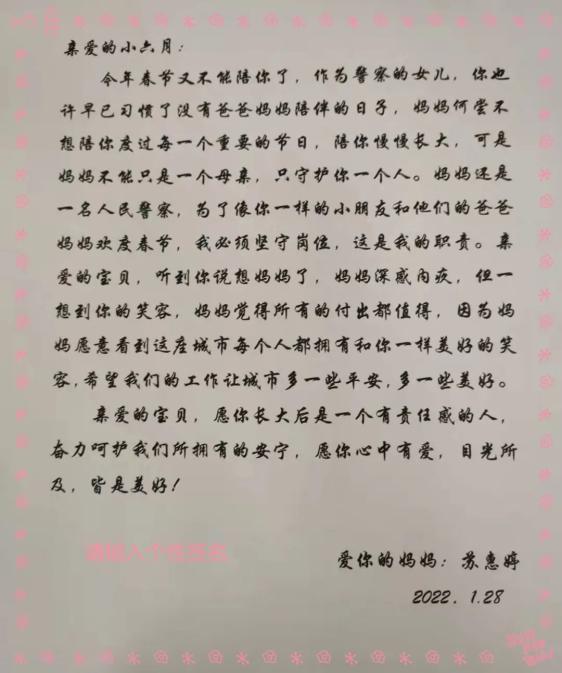 亲爱的小六月：
今年春节又不能陪你了，作为警察的女儿，你也
许早已习惯了没有爸爸妈妈陪伴的日子，妈妈何尝不
想陪你度过每一个重要的节日，陪你慢慢长大，可是
妈妈不能只是一个母亲，只守护你一个人。妈妈还是
一名人民警察，为了像你一样的小朋友和他们的爸爸
妈妈欢度春节，我必须坚守岗位，这是我的职责。亲
爱的宝贝，听到你说想妈妈了，妈妈深感内疚，但一
想到你的笑容，妈妈觉得所有的付出都值得，因为妈
妈愿意看到这座城市每个人都拥有和你一样美好的笑
容，希望我们的工作让城市多一些平安，多一些美好。
亲爱的宝贝，愿你长大后是一个有责任感的人，
奋力呵护我们所拥有的安宁，愿你心中有爱，目光所
及，皆是美好！
请输入个性签名
爱你的妈妈：苏惠婷
2022．1.28